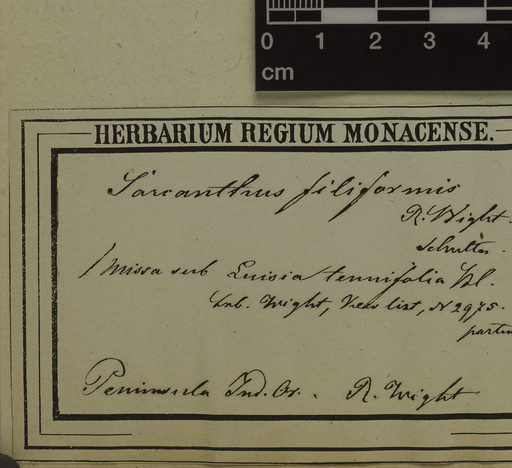 0 1 2 3 4
cm
HERBARIUM REGIUM MONACENSE.
Sarcanthus filiformis
R. Wight.
Schultes.
(missa sub Luisia tenuifolia Bl.
hrb. Wight, New list, N 2975.
partim
Peninsula Ind. Or. . R. Wight